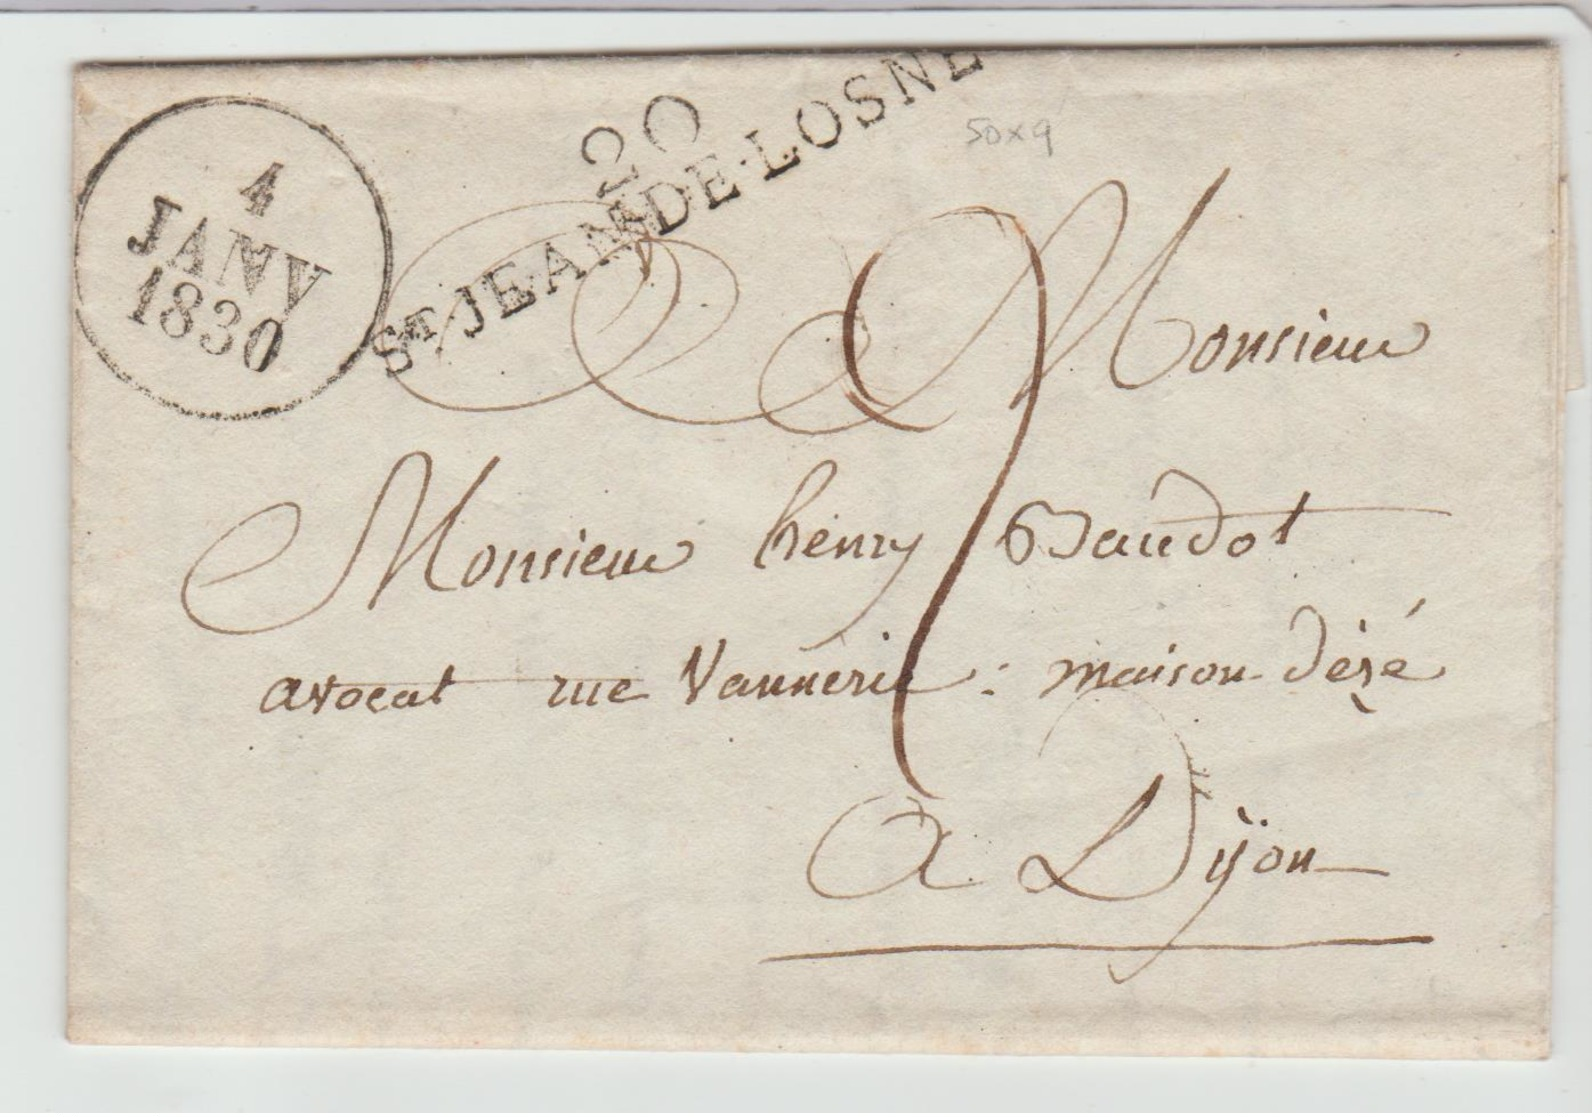 4
JANV
1830
20
ST JEAN-DE-LOSNE
50x9
2
Monsieur
Monsieur henry Baudot
avocat rue Vannerie : maison dézé
a Dijon